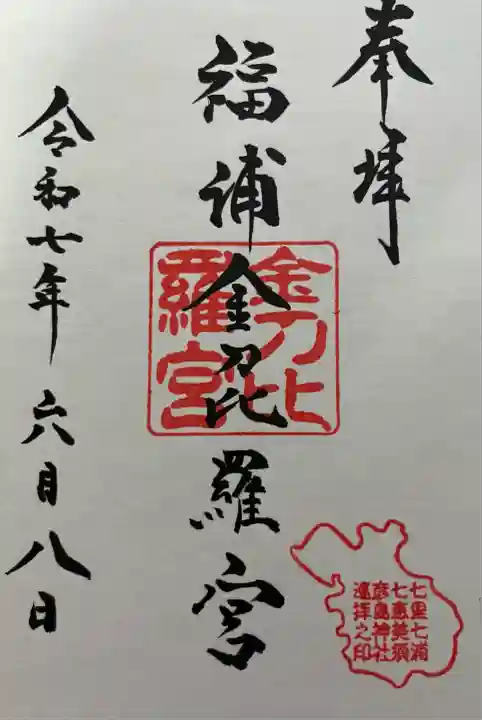 奉拝
福浦金刀比羅宮
金刀比羅宮
令和七年六月八日
七里七浦
七恵美須
彦島神社
遥拝之印